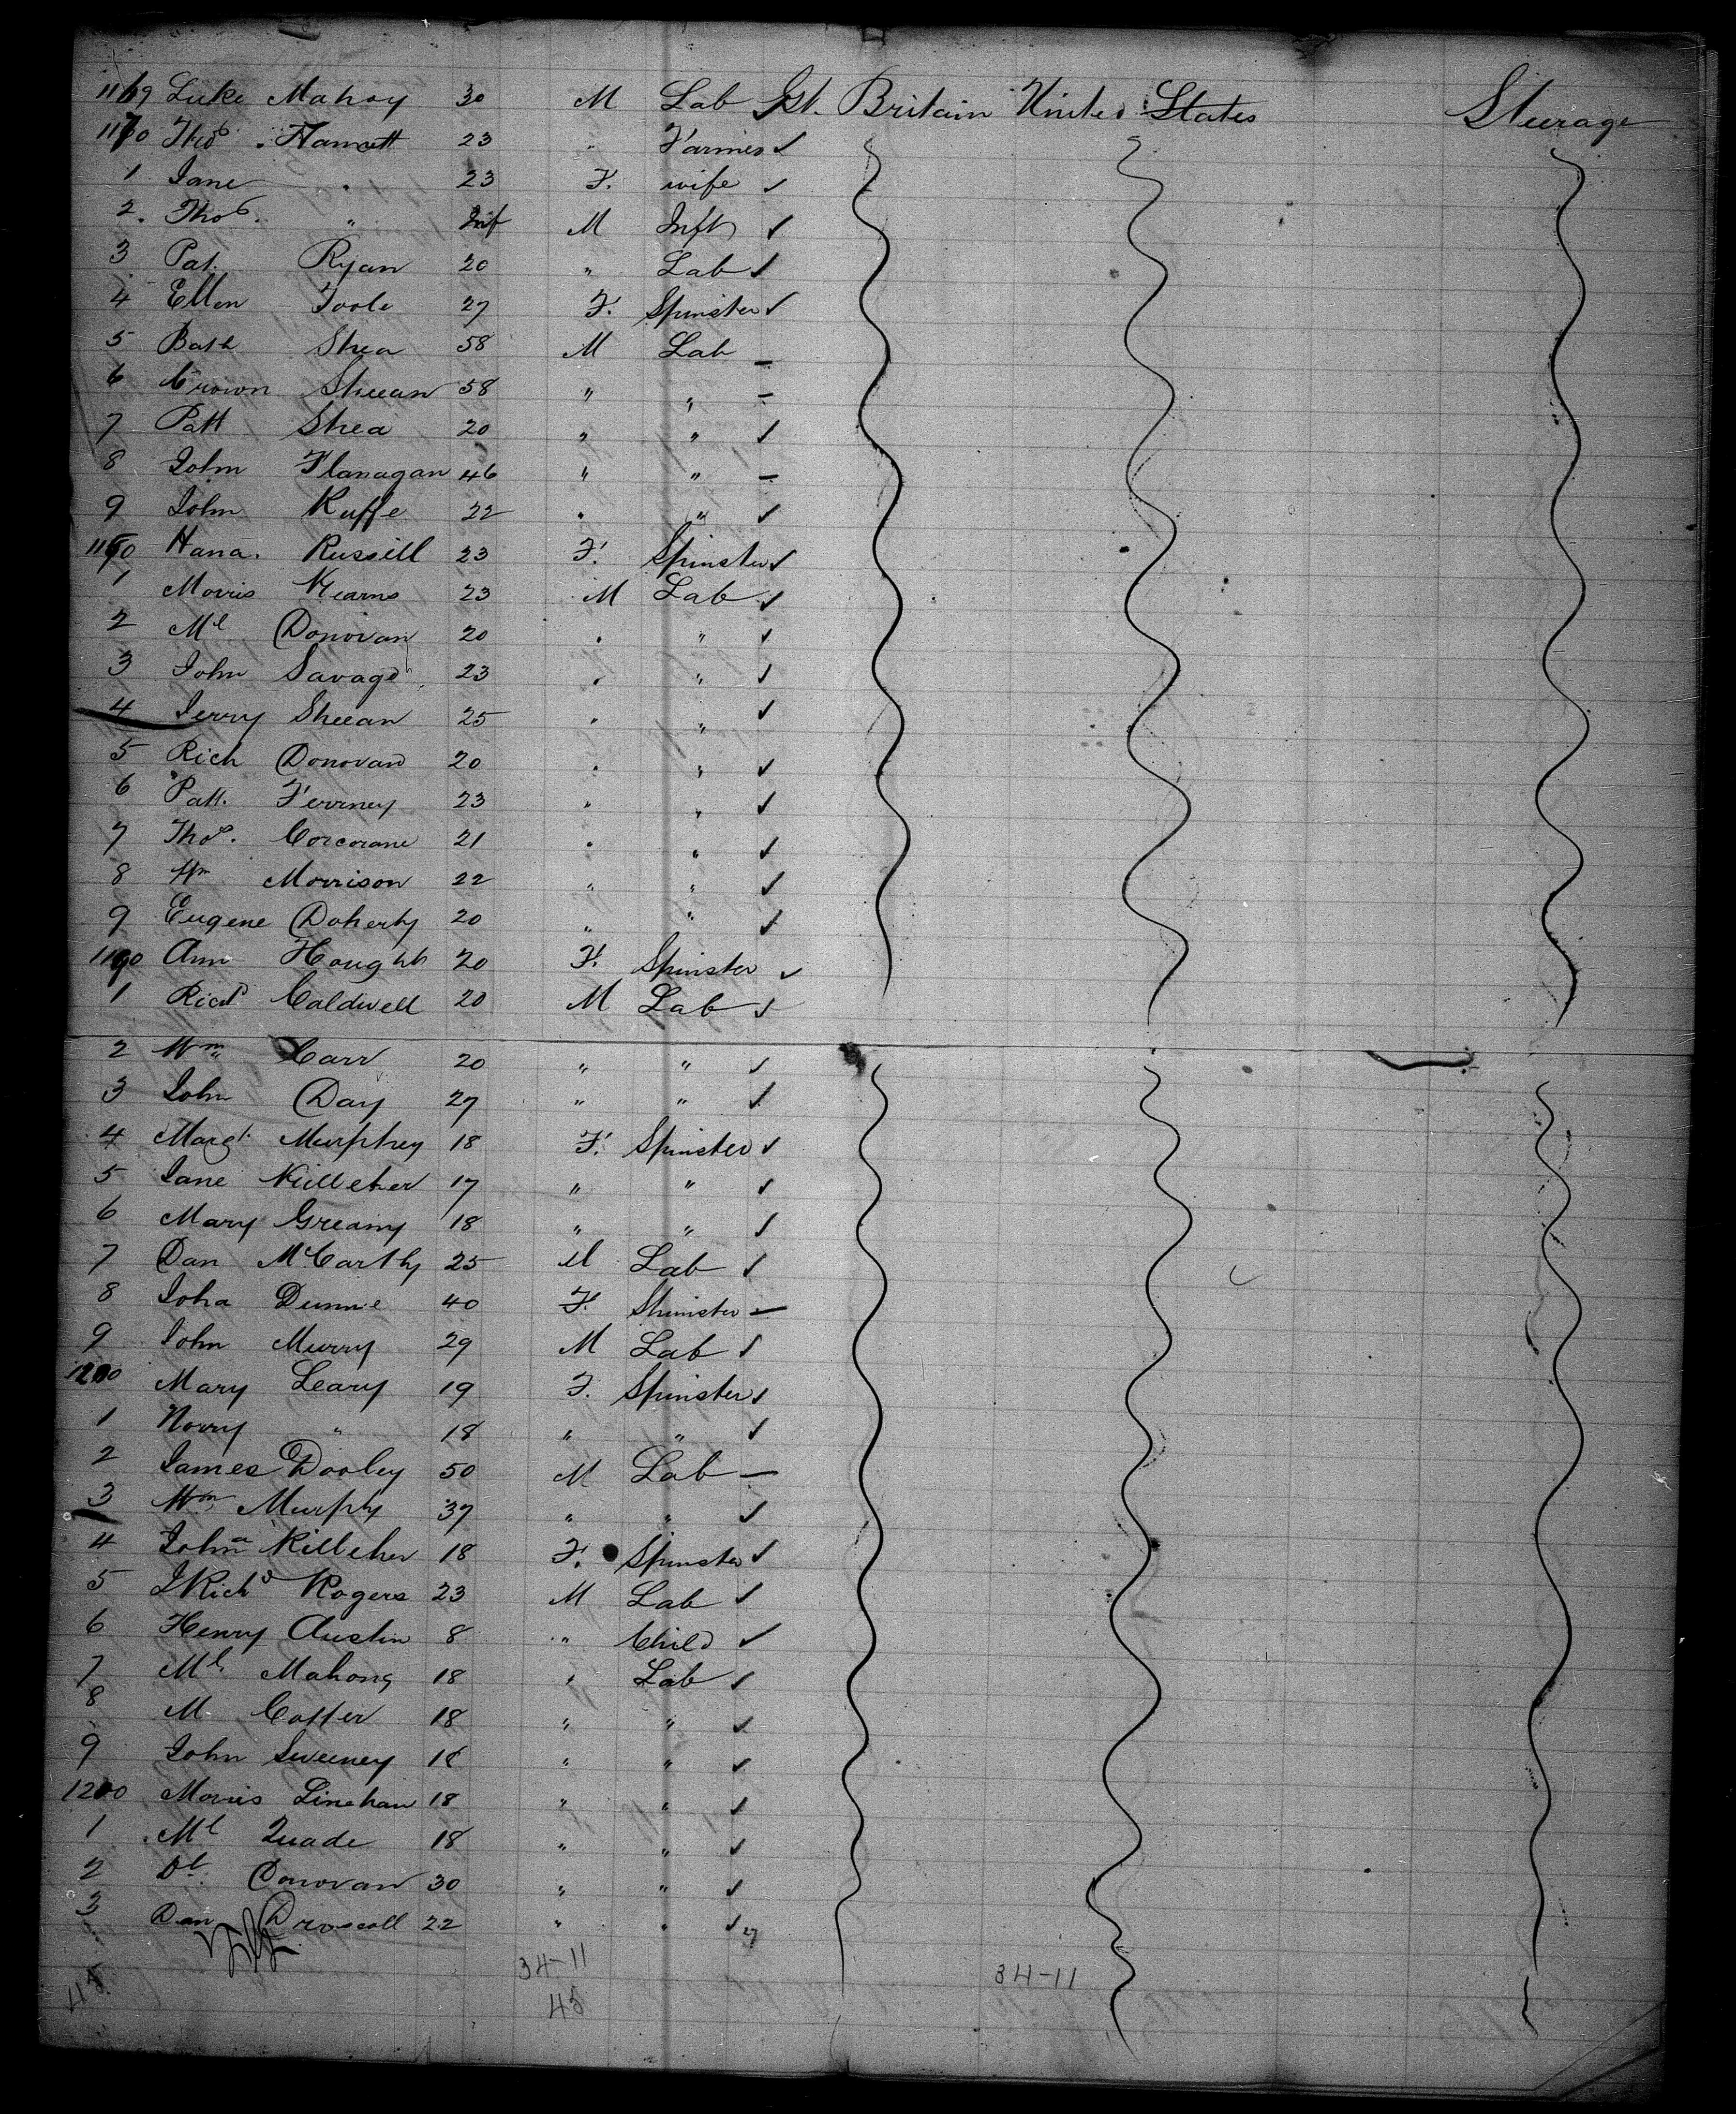 1169 Luke Mahoy 30 M Lab Gt. Britain United States Steerage
1170 Thos. Hamett 23 " Farmer ✓
1 Jane " 23 F. wife ✓
2. Thos. " Inf M Inft ✓
3 Pat. Ryan 20 " Lab ✓
4 Ellen Toole 27 F. Spinster ✓
5 Bath Shea 58 M Lab –
6 Crown Sheean 58 " " –
7 Patt Shea 20 " " ✓
8 John Flanagan 46 " " –
9 John Kuffe 22 " " ✓
1180 Hana. Russill 23 F. Spinster ✓
1 Morris Kearns 23 M Lab ✓
2 Ml Donovan 20 " " ✓
3 John Savage 23 " " ✓
4 Jerry Sheean 25 " " ✓
5 Rich Donovan 20 " " ✓
6 Patt. Ferrney 23 " " ✓
7 Thos. Corcorane 21 " " ✓
8 Wm Morrison 22 " " ✓
9 Eugene Doherty 20 " " ✓
1190 Ann Hought 20 F. Spinster ✓
1 Richd Caldwell 20 M Lab ✓
2 Wm Carr 20 " " ✓
3 John Day 27 " " ✓
4 Margt. Murphey 18 F. Spinster ✓
5 Jane Killeher 17 " " ✓
6 Mary Greamy 18 " " ✓
7 Dan McCarthy 25 M Lab ✓
8 Joha Dunne 40 F. Spinster –
9 John Murry 29 M Lab ✓
1200 Mary Leary 19 F. Spinster ✓
1 Norry " 18 " " ✓
2 James Dooley 50 M Lab –
3 Wm Murphy 37 " " ✓
4 Johna Killeher 18 F. Spinster ✓
5 J Richd Rogers 23 M Lab ✓
6 Henry Austin 8 " Child ✓
7 Ml Mahony 18 " Lab ✓
8 M Cotter 18 " " ✓
9 John Sweeney 18 " " ✓
1210 Morris Linehan 18 " " ✓
1 Ml Quade 18 " " ✓
2 Dl. Donovan 30 " " ✓
3 Dan Droscoll 22 " " ✓
34-11 34-11
45 45